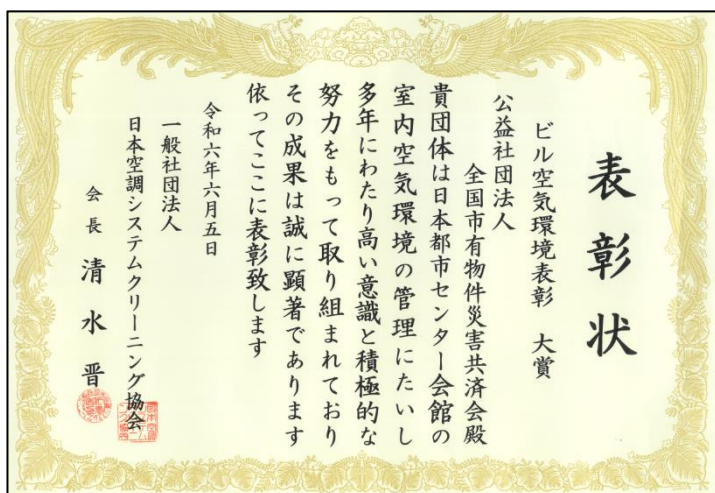 表彰状
ビル空気環境表彰 大賞
公益社団法人
全国市有物件災害共済会殿
貴団体は日本都市センター会館の
室内空気環境の管理にたいし
多年にわたり高い意識と積極的な
努力をもって取り組まれており
その成果は誠に顕著であります
依ってここに表彰致します
令和六年六月五日
一般社団法人
日本空調システムクリーニング協会
会長 清水晋